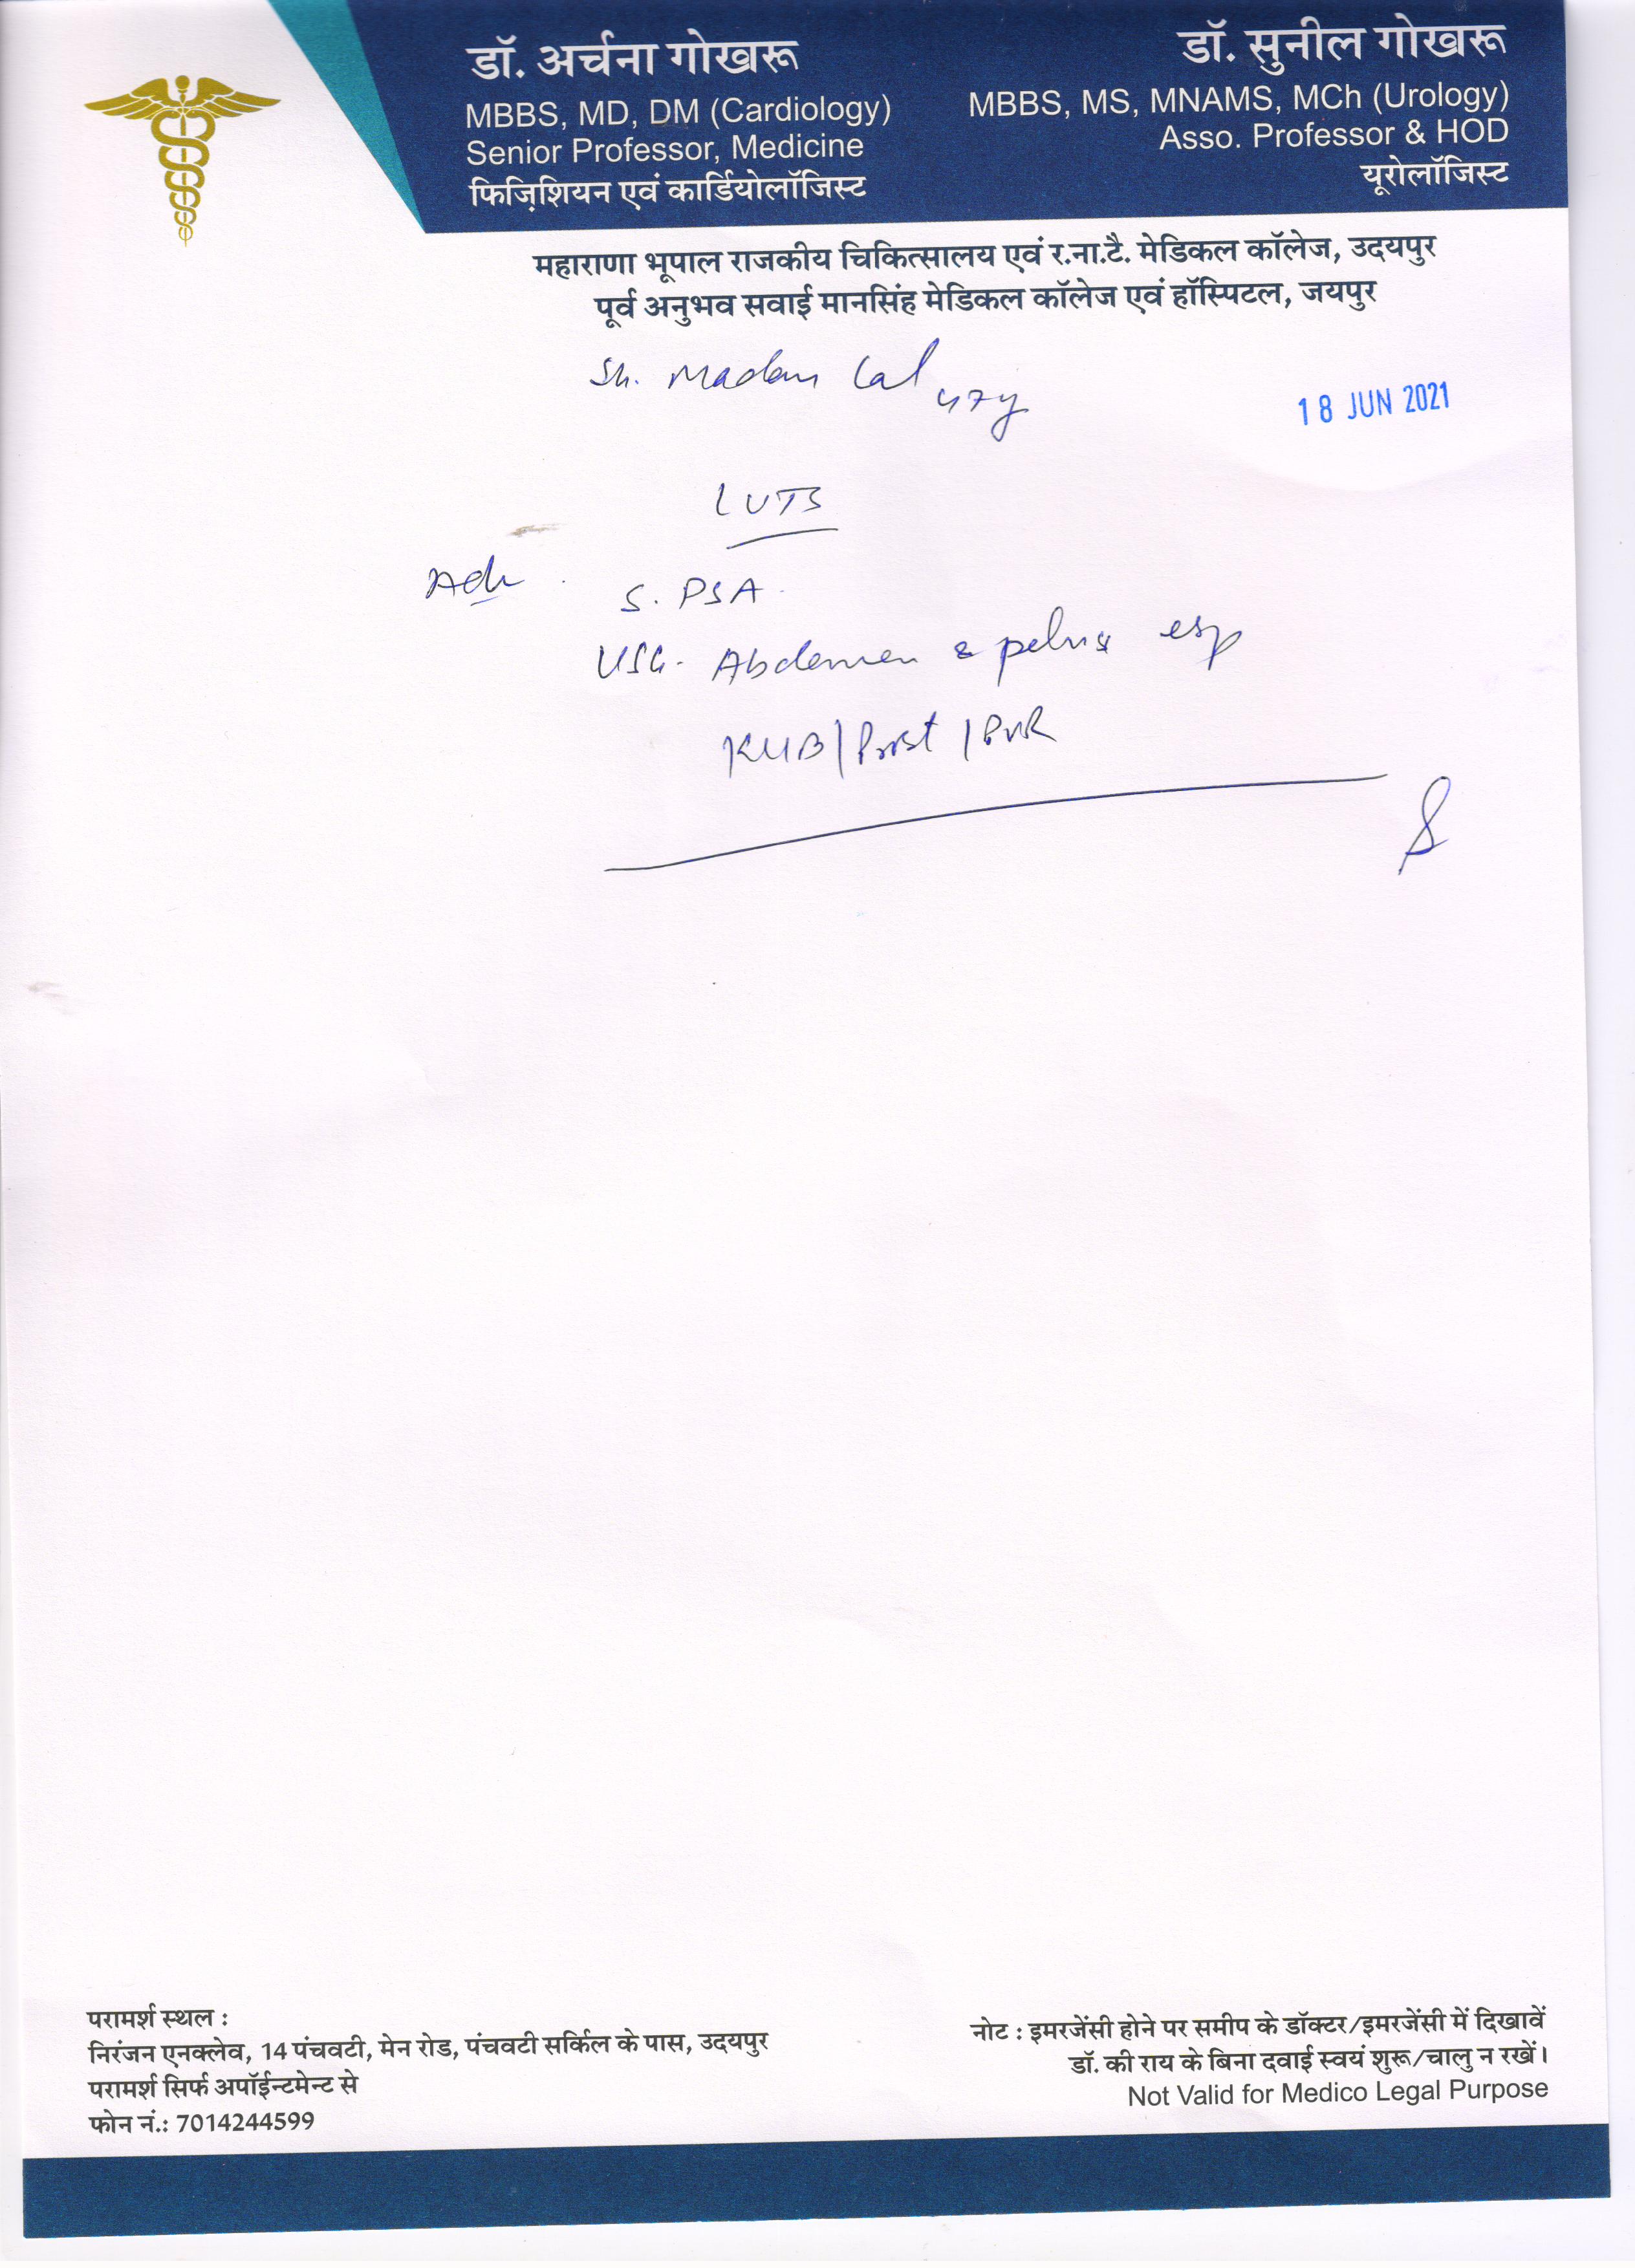 डॉ. अर्चना गोखरू
MBBS, MD, DM (Cardiology)
Senior Professor, Medicine
फिज़िशियन एवं कार्डियोलॉजिस्ट
डॉ. सुनील गोखरू
MBBS, MS, MNAMS, MCh (Urology)
Asso. Professor & HOD
यूरोलॉजिस्ट
महाराणा भूपाल राजकीय चिकित्सालय एवं र.ना.टै. मेडिकल कॉलेज, उदयपुर
पूर्व अनुभव सवाई मानसिंह मेडिकल कॉलेज एवं हॉस्पिटल, जयपुर
Sh. Madan Lal 47y
18 JUN 2021
LUTS
Adv
S. PSA
USG. Abdomen & pelvis esp
KUB/Prost/PVR
परामर्श स्थल :
निरंजन एनक्लेव, 14 पंचवटी, मेन रोड, पंचवटी सर्किल के पास, उदयपुर
परामर्श सिर्फ अपॉईन्टमेन्ट से
फोन नं.: 7014244599
नोट : इमरजेंसी होने पर समीप के डॉक्टर/इमरजेंसी में दिखावें
डॉ. की राय के बिना दवाई स्वयं शुरू/चालु न रखें।
Not Valid for Medico Legal Purpose